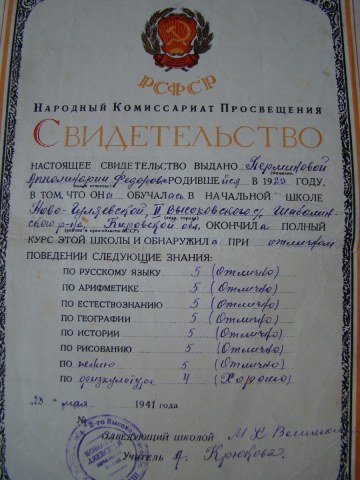 РСФСР
НАРОДНЫЙ КОМИССАРИАТ ПРОСВЕЩЕНИЯ
СВИДЕТЕЛЬСТВО
НАСТОЯЩЕЕ СВИДЕТЕЛЬСТВО ВЫДАНО
РОДИВШЕЙСЯ В 1929 ГОДУ,
В ТОМ, ЧТО ОНА ОБУЧАЛАСЬ В НАЧАЛЬНОЙ ШКОЛЕ
II Высоковского с/ Шабалин-
ского р-на, Кировской обл. ОКОНЧИЛА ПОЛНЫЙ
КУРС ЭТОЙ ШКОЛЫ И ОБНАРУЖИЛА ПРИ отличном
ПОВЕДЕНИИ СЛЕДУЮЩИЕ ЗНАНИЯ:
ПО РУССКОМУ ЯЗЫКУ 5 (Отлично)
ПО АРИФМЕТИКЕ 5 (Отлично)
ПО ЕСТЕСТВОЗНАНИЮ 5 (Отлично)
ПО ГЕОГРАФИИ 5 (Отлично)
ПО ИСТОРИИ 5 (Отлично)
ПО РИСОВАНИЮ 5 (Отлично)
ПО пению 5 (Отлично)
ПО физкультура 4 (Хорошо)
"28" мая 1941 года
№
Заведующий школой
Учитель А. Крюкова